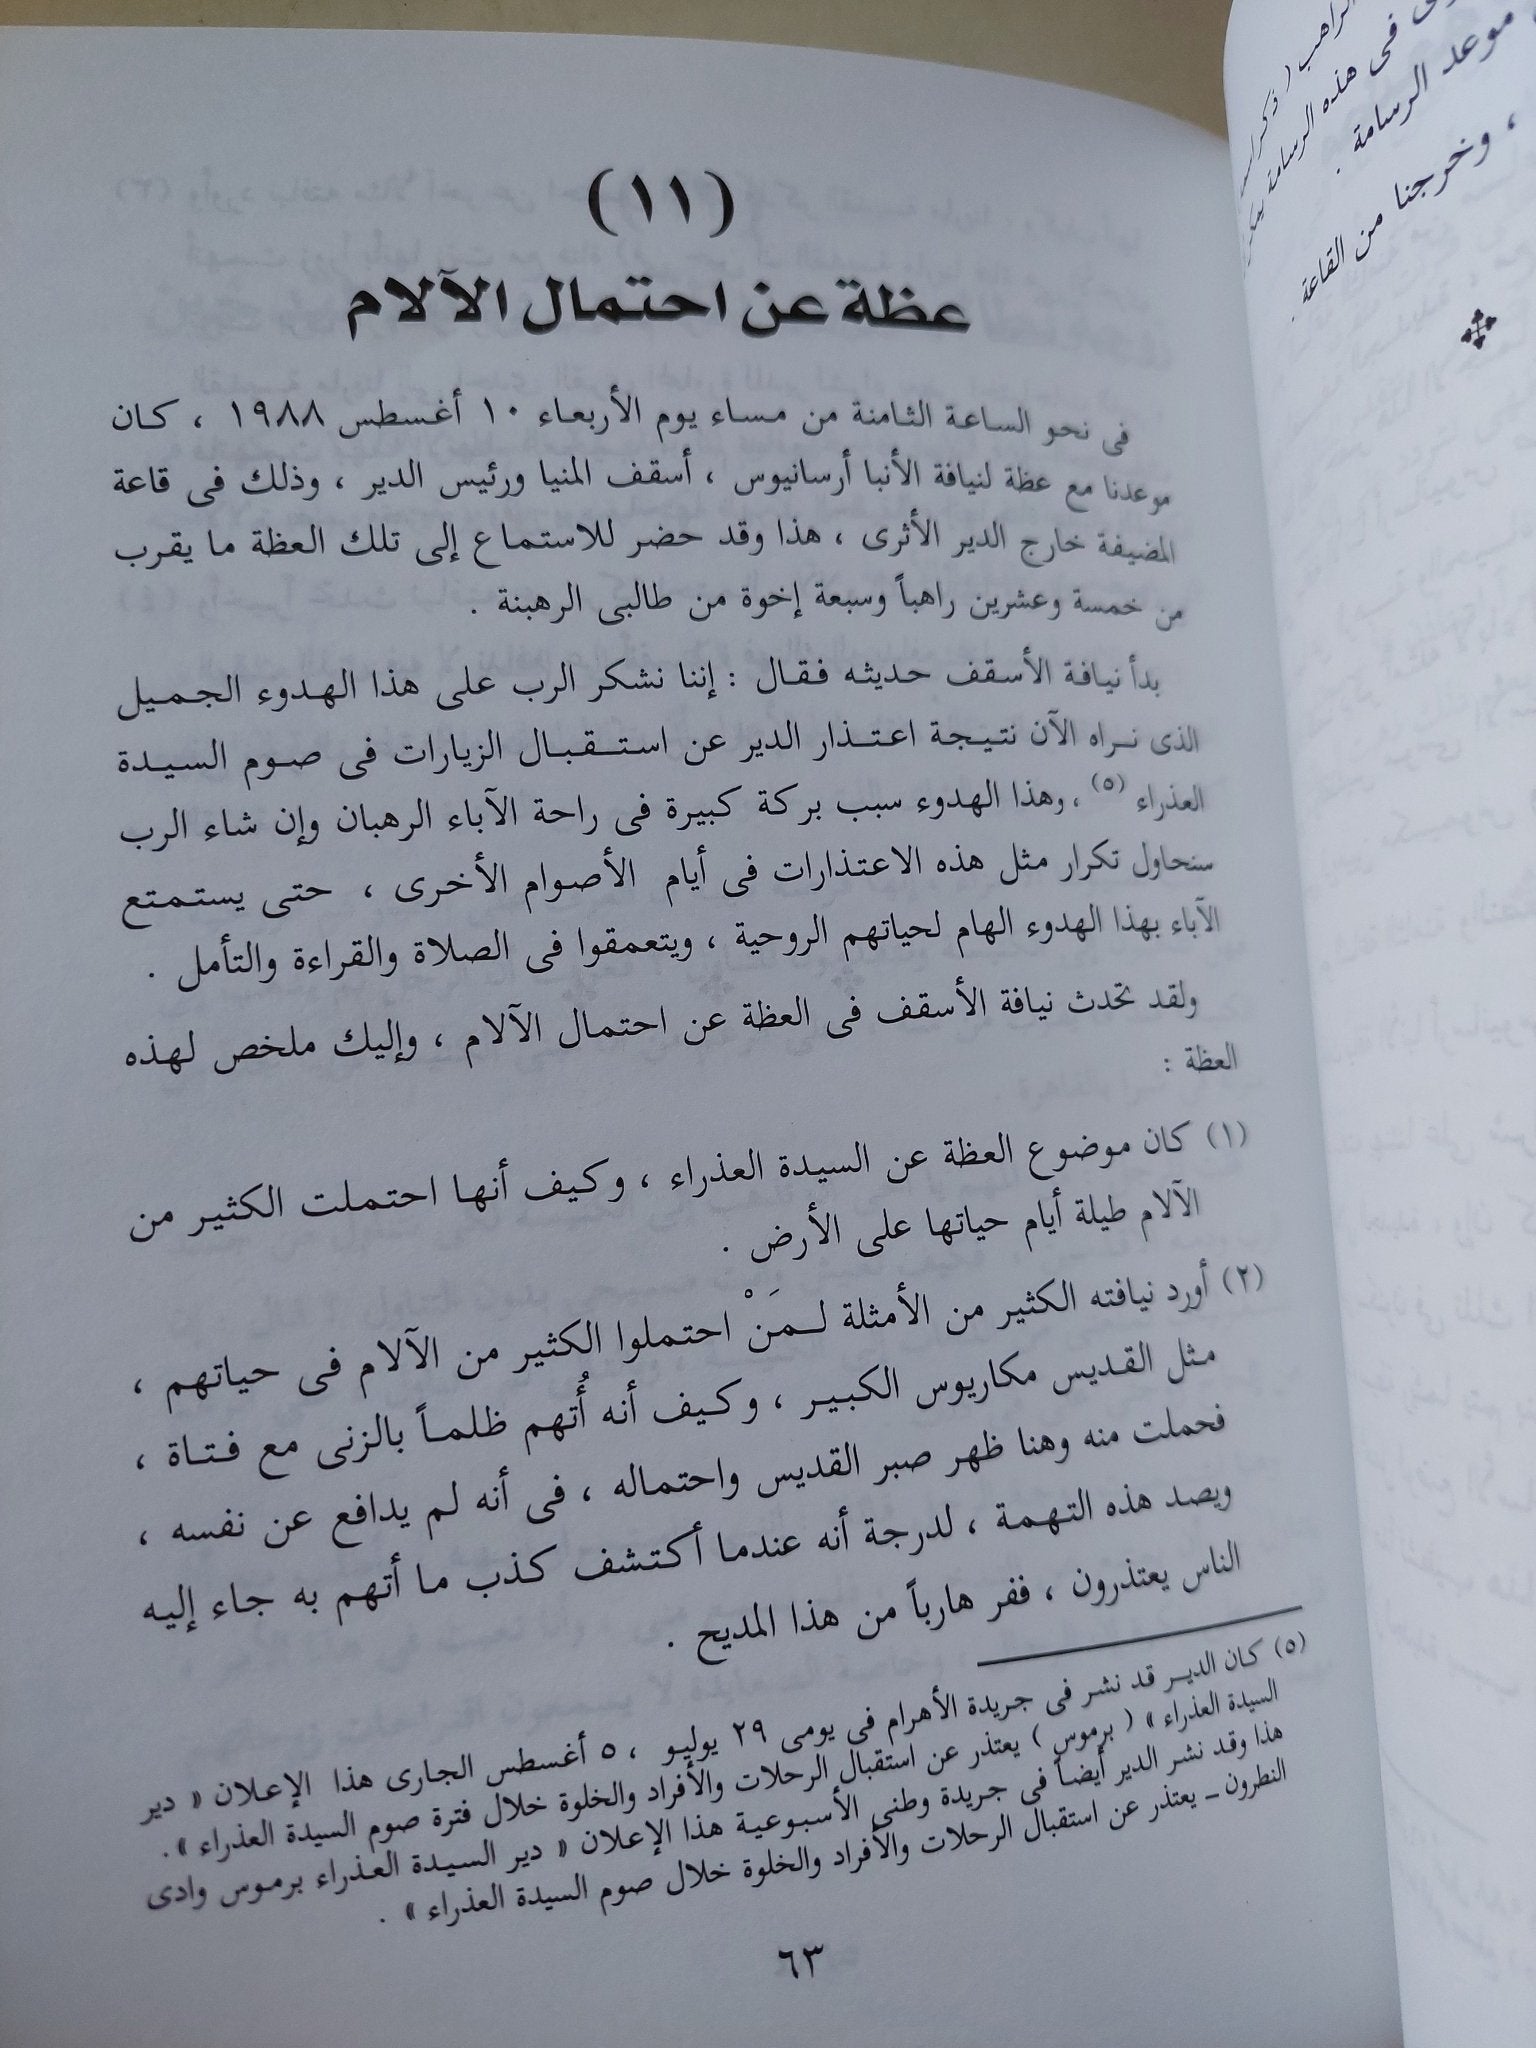 (١١)
عظة عن احتمال الآلام
فى نحو الساعة الثامنة من مساء يوم الأربعاء ١٠ أغسطس ١٩٨٨ ، كان
موعدنا مع عظة لنيافة الأنبا أرسانيوس ، أسقف المنيا ورئيس الدير ، وذلك فى قاعة
المضيفة خارج الدير الأثرى ، هذا وقد حضر للاستماع إلى تلك العظة ما يقرب
من خمسة وعشرين راهباً وسبعة إخوة من طالبى الرهبنة .
بدأ نيافة الأسقف حديثه فقال : إننا نشكر الرب على هذا الهدوء الجميل
الذى نراه الآن نتيجة اعتذار الدير عن استقبال الزيارات فى صوم السيدة
العذراء (٥) ، وهذا الهدوء سبب بركة كبيرة فى راحة الآباء الرهبان وإن شاء الرب
سنحاول تكرار مثل هذه الاعتذارات فى أيام الأصوام الأخرى ، حتى يستمتع
الآباء بهذا الهدوء الهام لحياتهم الروحية ، ويتعمقوا فى الصلاة والقراءة والتأمل .
ولقد تحدث نيافة الأسقف فى العظة عن احتمال الآلام ، وإليك ملخص لهذه
العظة :
(١) كان موضوع العظة عن السيدة العذراء ، وكيف أنها احتملت الكثير من
الآلام طيلة أيام حياتها على الأرض .
(٢) أورد نيافته الكثير من الأمثلة لـمَنْ احتملوا الكثير من الآلام فى حياتهم ،
مثل القديس مكاريوس الكبير ، وكيف أنه أُتهم ظلماً بالزنى مع فتاة ،
فحملت منه وهنا ظهر صبر القديس واحتماله ، فى أنه لم يدافع عن نفسه ،
ويصد هذه التهمة ، لدرجة أنه عندما أكتشف كذب ما أتهم به جاء إليه
الناس يعتذرون ، ففر هارباً من هذا المديح .
(٥) كان الدير قد نشر فى جريدة الأهرام فى يومى ٢٩ يوليو ، ٥ أغسطس الجارى هذا الإعلان « دير
السيدة العذراء » ( برموس ) يعتذر عن استقبال الرحلات والأفراد والخلوة خلال فترة صوم السيدة العذراء » .
هذا وقد نشر الدير أيضاً فى جريدة وطنى الأسبوعية هذا الإعلان « دير السيدة العذراء برموس وادى
النطرون ــ يعتذر عن استقبال الرحلات والأفراد والخلوة خلال صوم السيدة العذراء » .
٦٣
الراهب (
فى هذه الرسامة
موعد الرسامة .
، وخرجنا من القاعة .